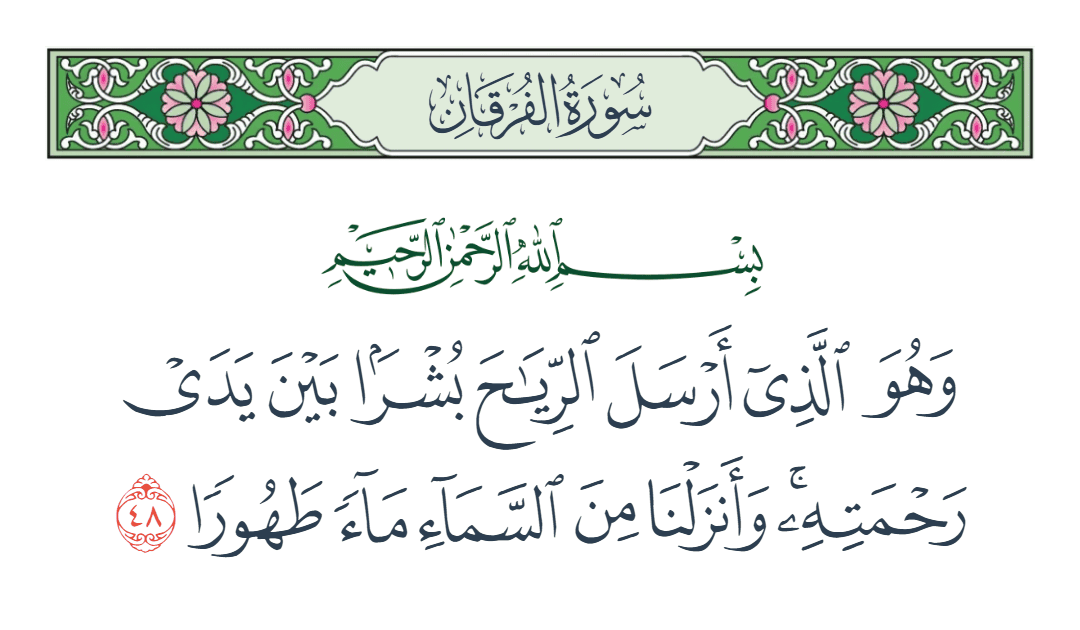 سُورَةُ الفُرۡقَانِ
بِسۡمِ ٱللَّهِ ٱلرَّحۡمَٰنِ ٱلرَّحِيمِ
وَهُوَ ٱلَّذِيٓ أَرۡسَلَ ٱلرِّيَٰحَ بُشۡرَۢا بَيۡنَ يَدَيۡ
رَحۡمَتِهِۦۚ وَأَنزَلۡنَا مِنَ ٱلسَّمَآءِ مَآءٗ طَهُورٗا ٤٨